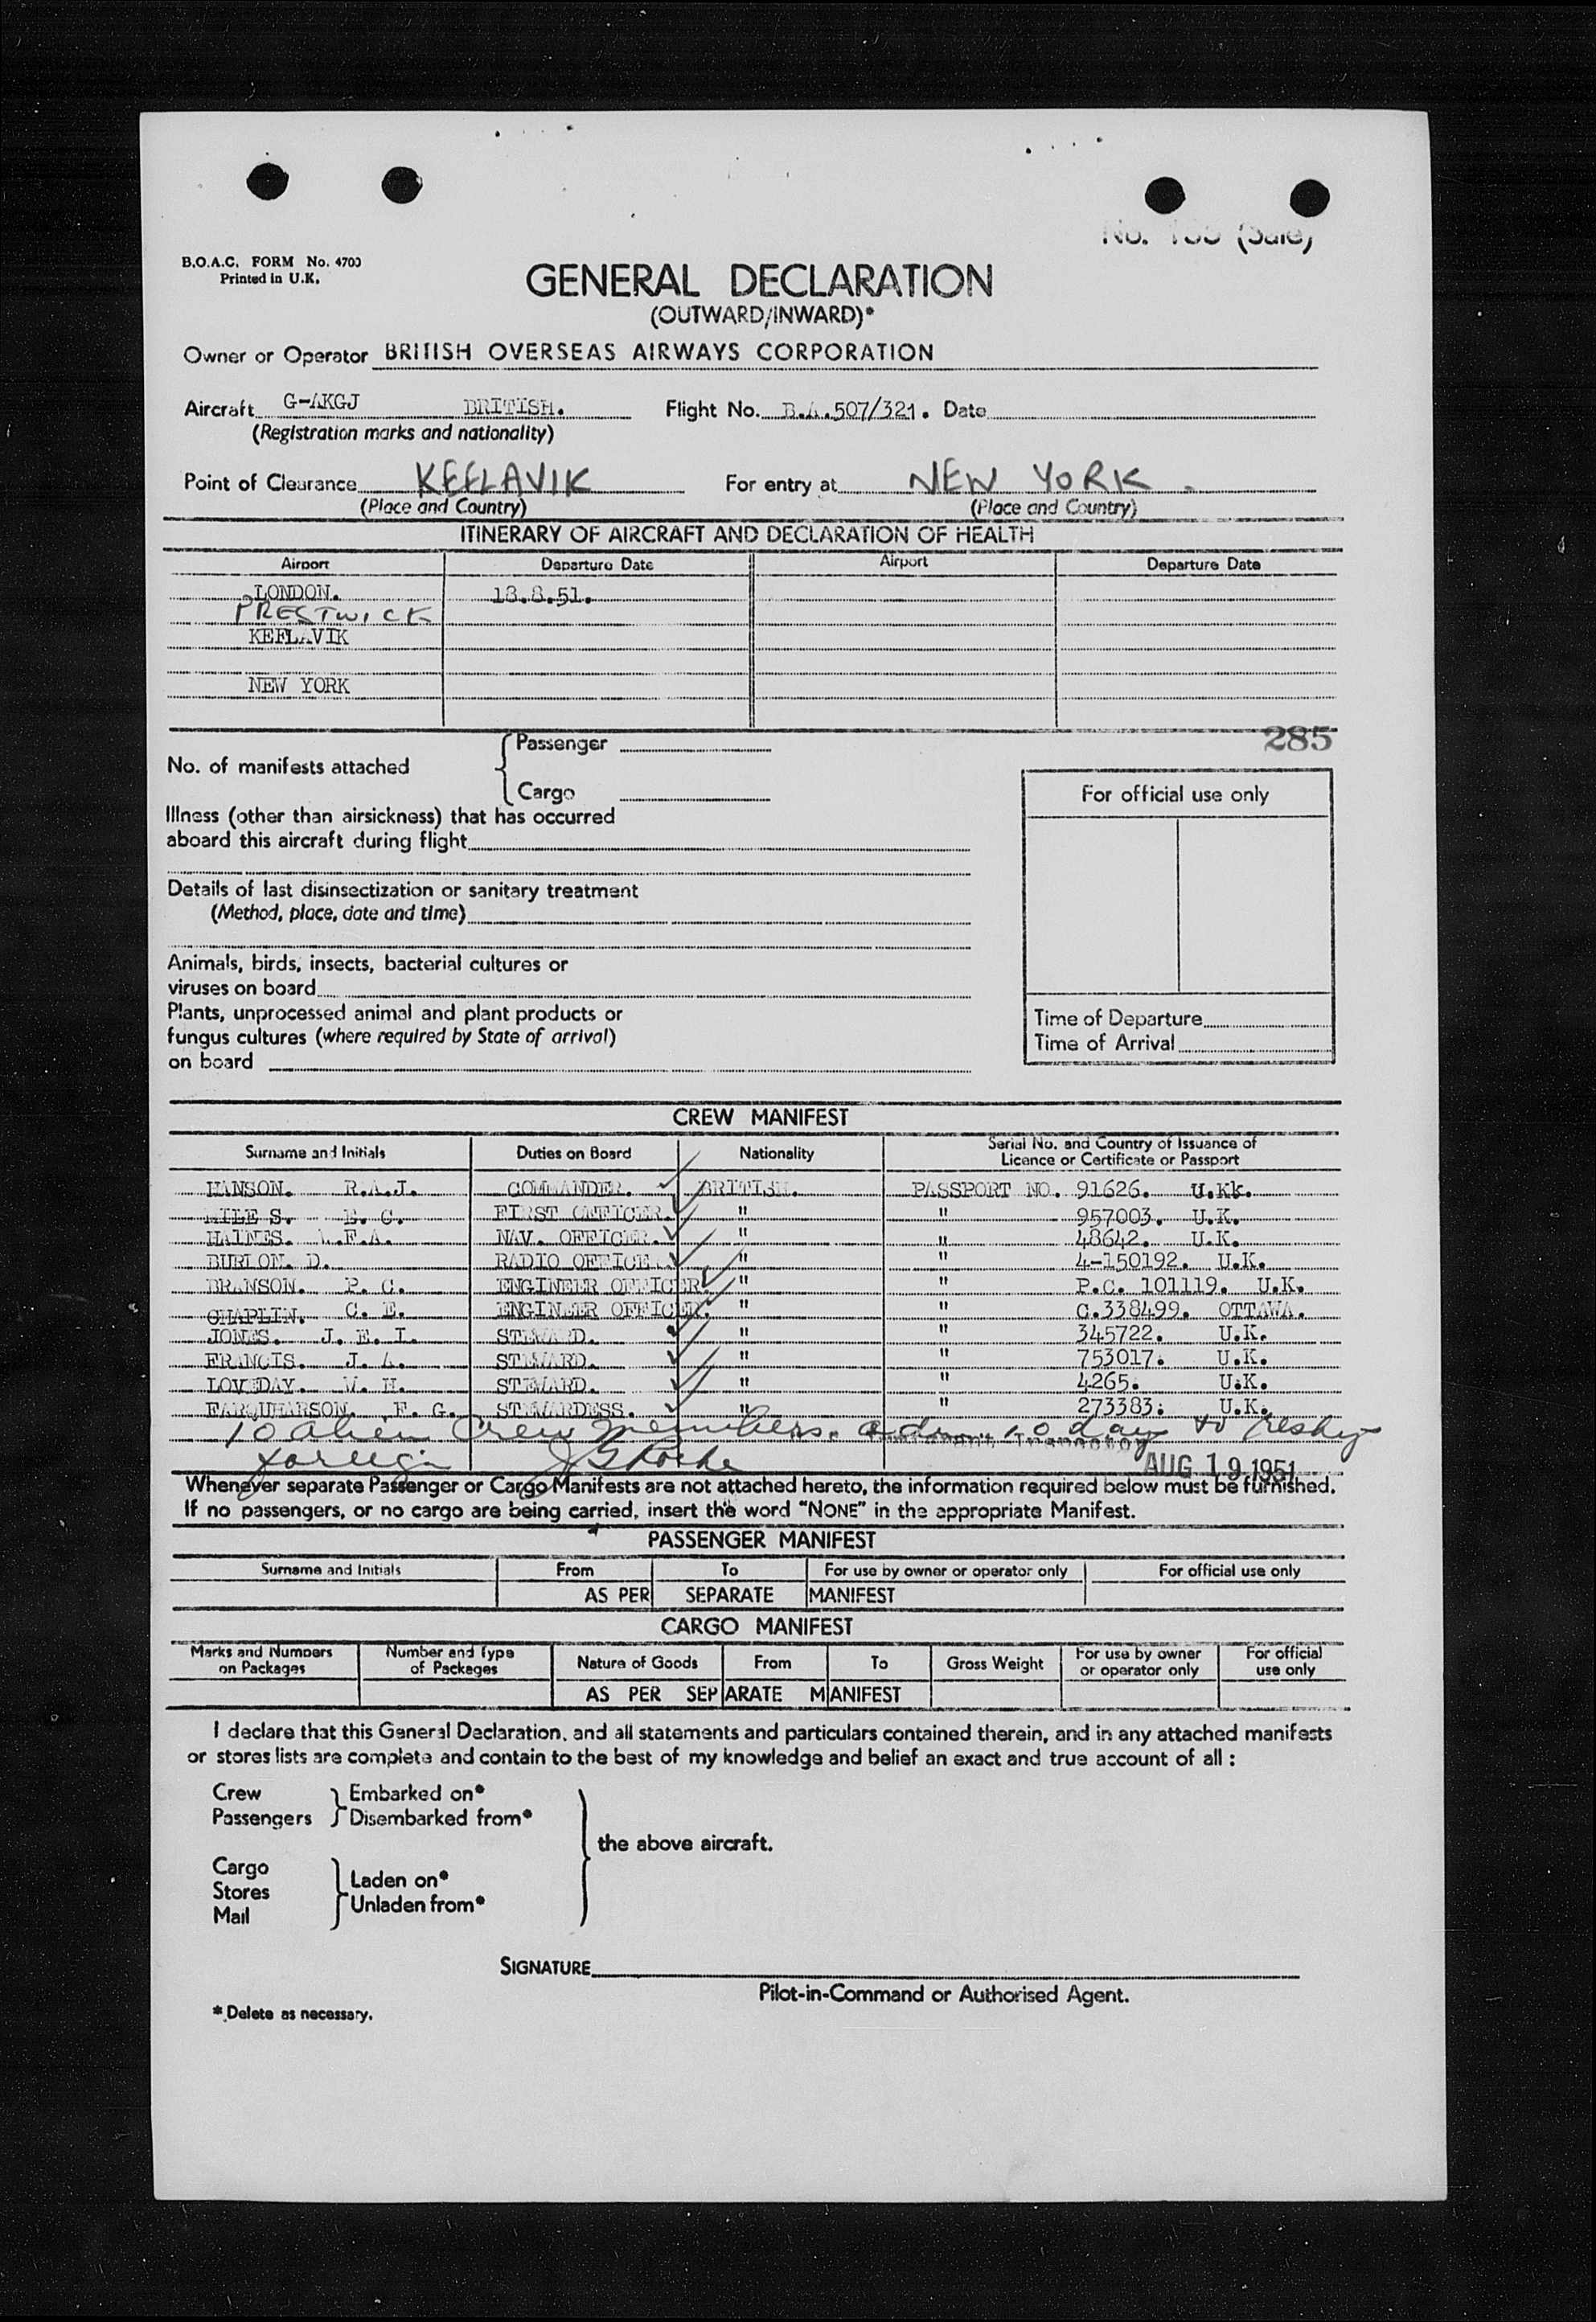 No. (Sale)
B.O.A.C. FORM No. 4700
Printed in U.K.
GENERAL DECLARATION
(OUTWARD/INWARD)*
Owner or Operator BRITISH OVERSEAS AIRWAYS CORPORATION
Aircraft G-AKGJ BRITISH. Flight No. B.A.507/321. Date
(Registration marks and nationality)
Point of Clearance KEFLAVIK For entry at NEW YORK.
(Place and Country) (Place and Country)
ITINERARY OF AIRCRAFT AND DECLARATION OF HEALTH
Airport Departure Date Airport Departure Date
LONDON. 18.8.51.
PRESTWICK
KEFLAVIK
NEW YORK
285
No. of manifests attached { Passenger
Cargo
For official use only
Illness (other than airsickness) that has occurred
aboard this aircraft during flight
Details of last disinsectization or sanitary treatment
(Method, place, date and time)
Animals, birds, insects, bacterial cultures or
viruses on board
Plants, unprocessed animal and plant products or
fungus cultures (where required by State of arrival)
on board
Time of Departure
Time of Arrival
CREW MANIFEST
Surname and Initials Duties on Board Nationality Serial No. and Country of Issuance of Licence or Certificate or Passport
HANSON. R.A.J. COMMANDER. BRITISH. PASSPORT NO. 91626. U.Kk.
MILES. E. C. FIRST OFFICER. " " 957003. U.K.
HAINES. .F.A. NAV. OFFICER. " " 48642. U.K.
BURLON. D. RADIO OFFICE " " 4-150192. U.K.
BRANSON. P. C. ENGINEER OFFICER. " " P.C. 101119. U.K.
CHAPLIN. C. E. ENGINEER OFFICER. " " C.338499. OTTAWA.
JONES. J. E. I. STEWARD. " " 345722. U.K.
FRANCIS. J. A. STEWARD. " " 753017. U.K.
LOVEDAY. W. H. STEWARD. " " 4265. U.K.
FARQUHARSON. F. G. STEWARDESS. " " 273383. U.K.
10 alien Crew members. adm. 10 days to reship
foreign Inspector
AUG 19 1951
Whenever separate Passenger or Cargo Manifests are not attached hereto, the information required below must be furnished.
If no passengers, or no cargo are being carried, insert the word "NONE" in the appropriate Manifest.
PASSENGER MANIFEST
Surname and Initials From To For use by owner or operator only For official use only
AS PER SEPARATE MANIFEST
CARGO MANIFEST
Marks and Numbers on Packages Number and Type of Packages Nature of Goods From To Gross Weight For use by owner or operator only For official use only
AS PER SEPARATE MANIFEST
I declare that this General Declaration, and all statements and particulars contained therein, and in any attached manifests
or stores lists are complete and contain to the best of my knowledge and belief an exact and true account of all :
Crew } Embarked on*
Passengers } Disembarked from*
the above aircraft.
Cargo
Stores } Laden on*
Mail } Unladen from*
SIGNATURE
Pilot-in-Command or Authorised Agent.
* Delete as necessary.